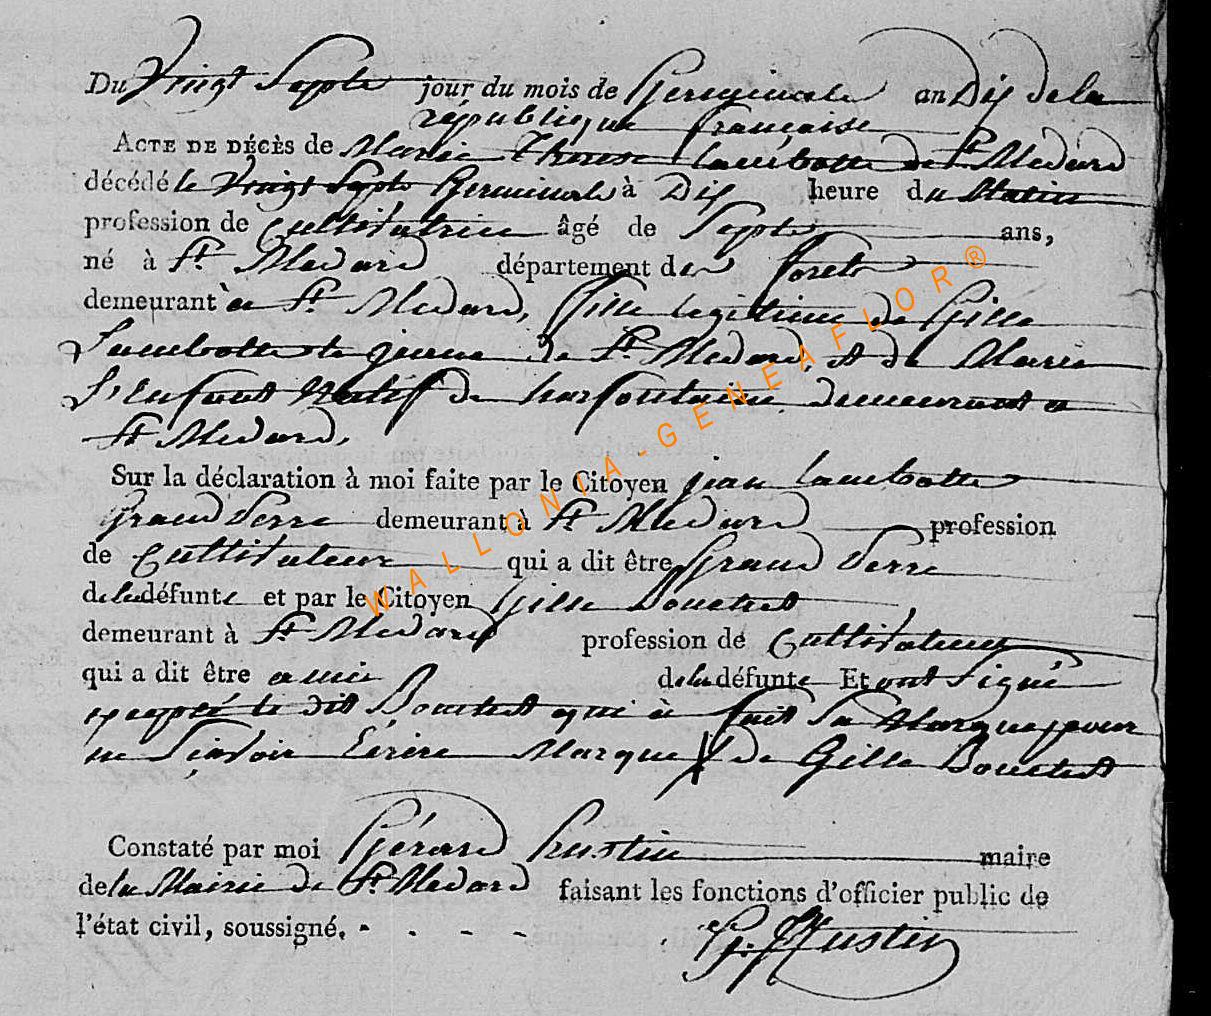 Du Vingt Septe jour du mois de Germinale an Dix de la
république française
ACTE DE DÉCÈS de Marie Therese Lambotte de St Medard
décédé le Vingt Septe Germinale à Dix heure du Matin
profession de Cultivatrice âgé de Septe ans,
né à St Medard département des Forets
demeurant à St Medard, fille legitime de Gille
Lambotte le jeune de St Medard, et de Marie
L'Enfant Natif de demeurant a
St Medard,
Sur la déclaration à moi faite par le Citoyen jean Lambotte
Grand Perre demeurant à St Medard profession
de Cultivateur qui a dit être Grand Perre
de la défunte et par le Citoyen Gille
demeurant à St Medard profession de Cultivateur
qui a dit être amie de la défunte Et ont Signé
excepté le dit qui à fait Sa Marque pour
ne Sçavoir Ecrire Marque X de Gille
Constaté par moi Gérard Hustin maire
de la Mairie de St Medard faisant les fonctions d'officier public de
l'état civil, soussigné. - - - - -
G. Hustin
WALLONIA-GENEAFLOR®